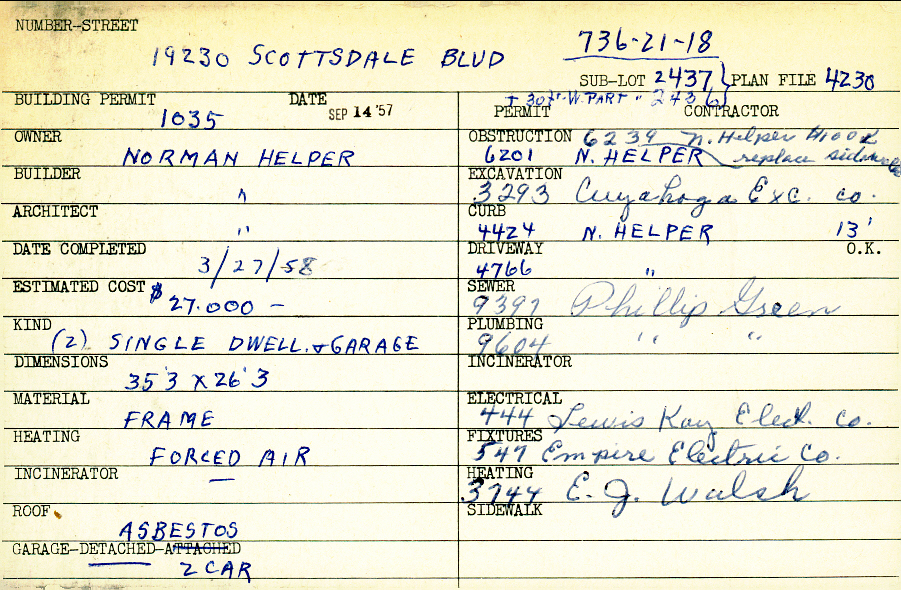 NUMBER-STREET
19230 SCOTTSDALE BLVD
736-21-18
SUB-LOT 2437 } PLAN FILE 4230
+ 30' W. PART " 2436
BUILDING PERMIT 1035
DATE SEP 14 '57
PERMIT CONTRACTOR
OWNER NORMAN HELPER
OBSTRUCTION 6239 N. Helper
6201 N. HELPER replace sidewalk
BUILDER "
EXCAVATION
3293 Cuyahoga Exc. Co.
ARCHITECT "
CURB
4424 N. HELPER 13'
DATE COMPLETED 3/27/58
DRIVEWAY O.K.
4766 "
ESTIMATED COST $27.000 —
SEWER
9397 Phillip Green
KIND (2) SINGLE DWELL. & GARAGE
PLUMBING
9604 " "
DIMENSIONS 35'3 X 26'3
INCINERATOR
MATERIAL FRAME
ELECTRICAL
444 Lewis Kay Elect. Co.
HEATING FORCED AIR
FIXTURES
547 Empire Electric Co.
INCINERATOR —
HEATING
3744 E. J. Walsh
ROOF ASBESTOS
SIDEWALK
GARAGE-DETACHED-ATTACHED
2 CAR